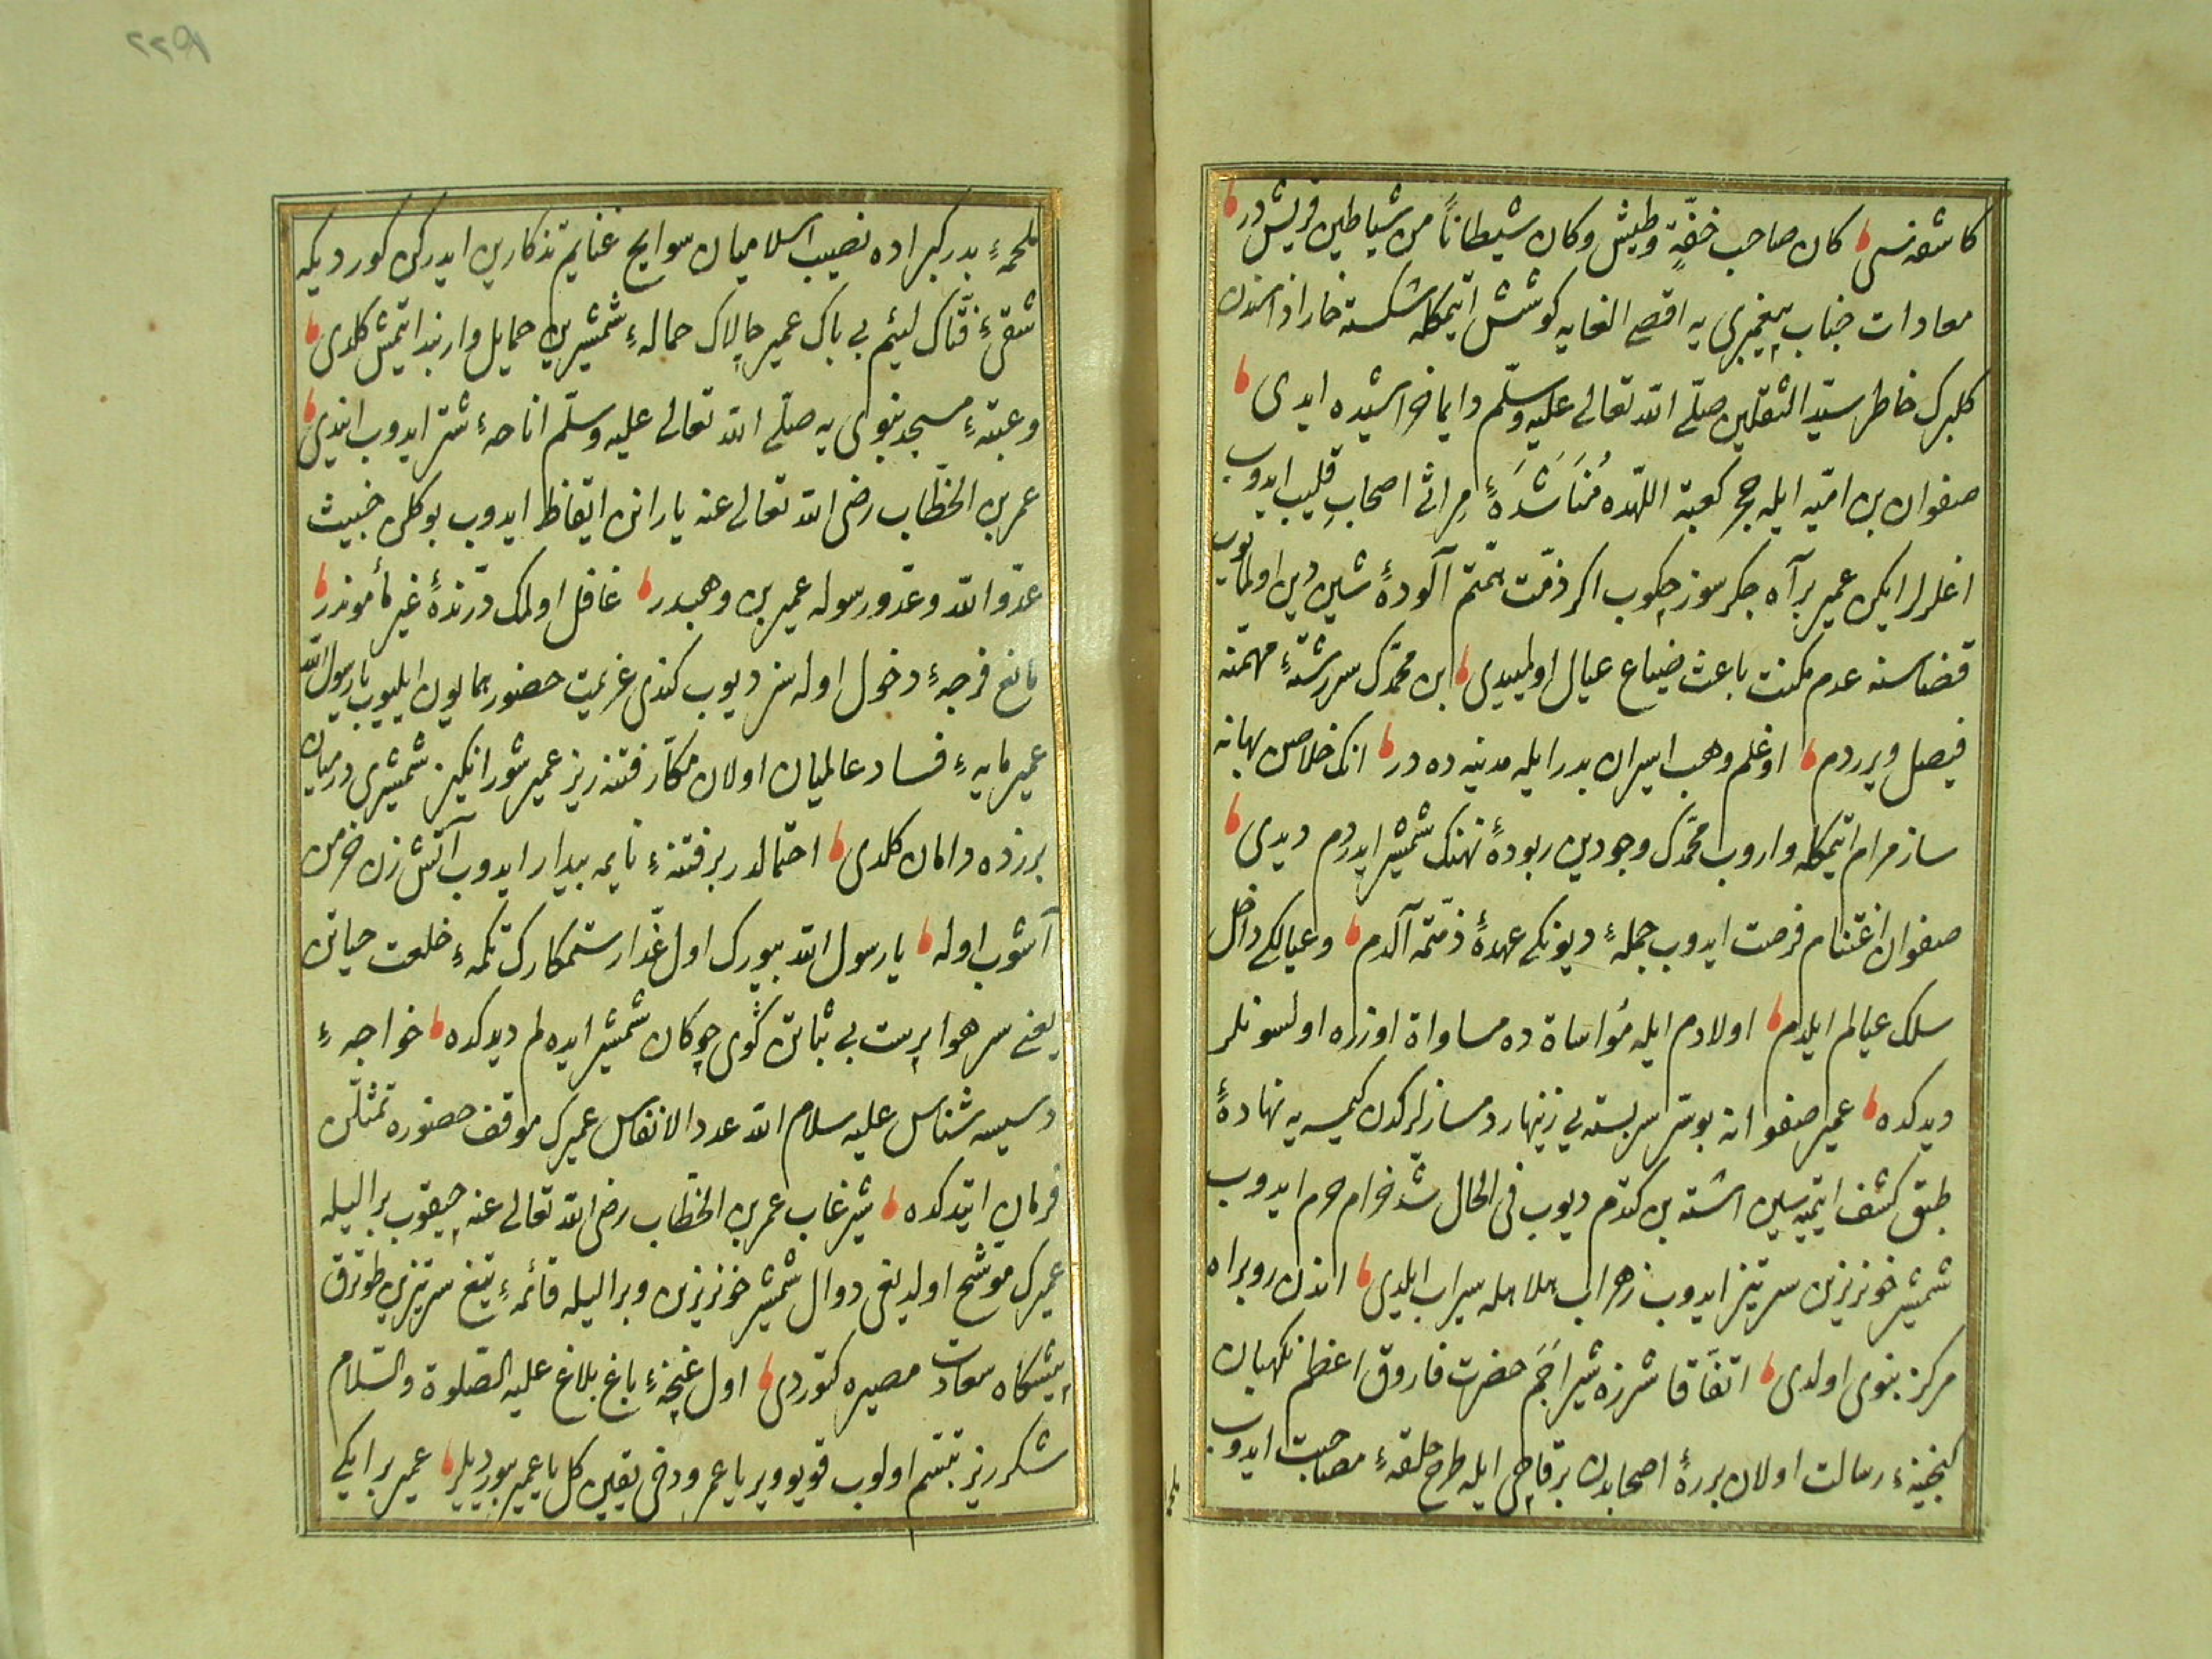 كان صاحب خفّةٍ وطيش وكان شيطاناً من شياطين قريش در
معادات جناب پيغمبرى يه اقصى الغايه كوشش ايتمكله شكسته خار اذاسندن
كلبرك خاطر سيّد الثقلين صلّى الله تعالى عليه وسلّم دايما خراشيده ايدى
صفوان بن اميّه ايله حجر كعبة اللهده مُنَاشَدَهٔ مراثى اصحابِ قليب ايدوب
اغلرلر ايكن عمير بر آه جكرسوز چكوب اكر ذمّت همّتم آلودهٔ شين دين اولمايوب
قضاسنه عدم مكنت باعث ضياع عيال اولميدى بن محمّدك سررشتهٔ مهمّنه
فيصل ويرردم اوغلم وهب اسيران بدر ايله مدينه ده در انك خلاصن بهانه
ساز مرام ايتمكله واروب محمّدك وجودين ربودهٔ نهنك شمشير ايدردم ديدى
صفوان اغتنام فرصت ايدوب جملهٔ ديونكى عهدهٔ ذمّتمه آلدم وعيالكى داخل
سلك عيالم ايلدم اولادم ايله مؤاساة ده مساواة اوزره اولسونلر
ديدكده عمير صفوانه بو سرّ سربسته يى زينهار دمسازلركدن كيمسه يه نهادهٔ
طبق كشف ايتميه سين اشته بن كتدم ديوب فى الحال شد خرام حرم ايدوب
شمشير خونريزين سرتيز ايدوب زهراب هلاهله سيراب ايلدى اندن روبراه
مركز نبوى اولدى اتفاقا شرزه شير اَجَم حضرت فاروق اعظم نكهبان
كنجينهٔ رسالت اولان بررهٔ اصحابدن برقاچى ايله طرح حلقهٔ مصاحبت ايدوب
ملحمهٔ بدر كبراده نصيب اسلاميان سوايح غنايم تذكارين ايدركن كورديكه
شقىٔ فتّاك لئيم بى باك عمير چالاك حمالهٔ شمشيرين حمايل وار بند ايتمش كلدى
وعتبهٔ مسجد نبوى يه صلّى الله تعالى عليه وسلّم اناحهٔ شتر ايدوب ايندى
عمر بن الخطّاب رضى الله تعالى عنه يارانن ايقاظ ايدوب بوكلن خبيث
عدّو الله وعدّو رسوله عمير بن وهبدر غافل اولمك درّندهٔ غير مأموندر
مانع فرجهٔ دخول اوله سز ديوب كندى عزيمت حضور همايون ايليوب يا رسول الله
عمير مايهٔ فساد عالميان اولان مكّار فتنه ريز عمير شورانكيز شمشيرى درميان
برزده دامان كلدى احتمالدر بر فتنهٔ نايمه بيدار ايدوب آتش زن خرمن
آشوب اوله يا رسول الله بيورك اول غدّار ستمكارك تكمهٔ خلعت حياتن
يعنى سر هواپرست بى ثباتن كوى چوكان شمشير ايده لم ديدكده خواجهٔ
دسيسه شناس عليه سلام الله عدد الانفاس عميرك موقف حضوره تمثلن
فرمان ايتدكده شير غاب عمر بن الخطّاب رضى الله تعالى عنه چيقوب بر اليله
عميرك موشّح اولديغى دوال شمشير خونريزين وبر اليله قائمهٔ تيغ سرتيزين طوترق
پيشكاه سعادت مصيره كتوردى اول غنچهٔ باغ بلاغ عليه الصّلوة والسّلام
شكرريز تبسّم اولوب قويوويريا عمر ودخى يقين كل يا عمير بيورديلر عمير بر ايكى